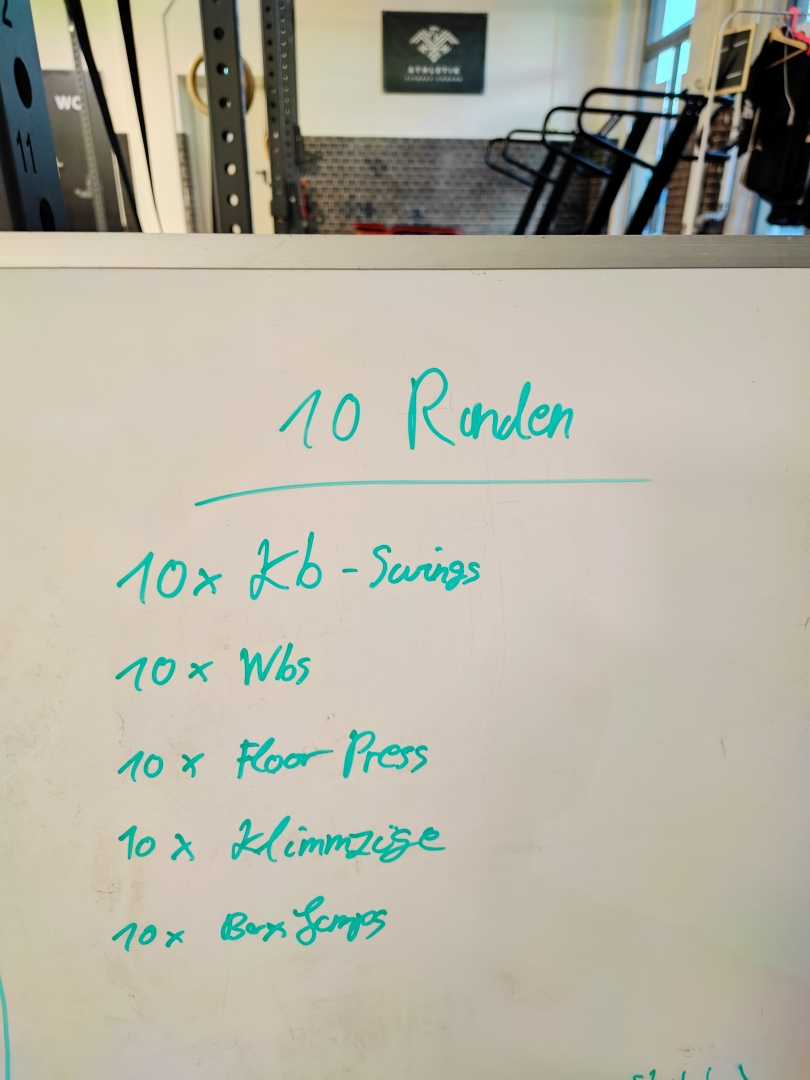 2
11
WC
ATHLETIK
10 Runden
10x Kb-Swings
10x Wbs
10x Floor Press
10x Klimmzüge
10x Box Jumps